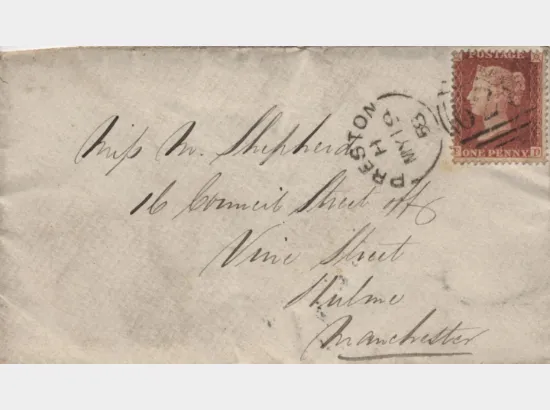 POSTAGE
ONE PENNY
D
PRESTON
H
MY 19
63
Miss M. Shepherd
16 Council Street off
Vine Street
Hulme
Manchester